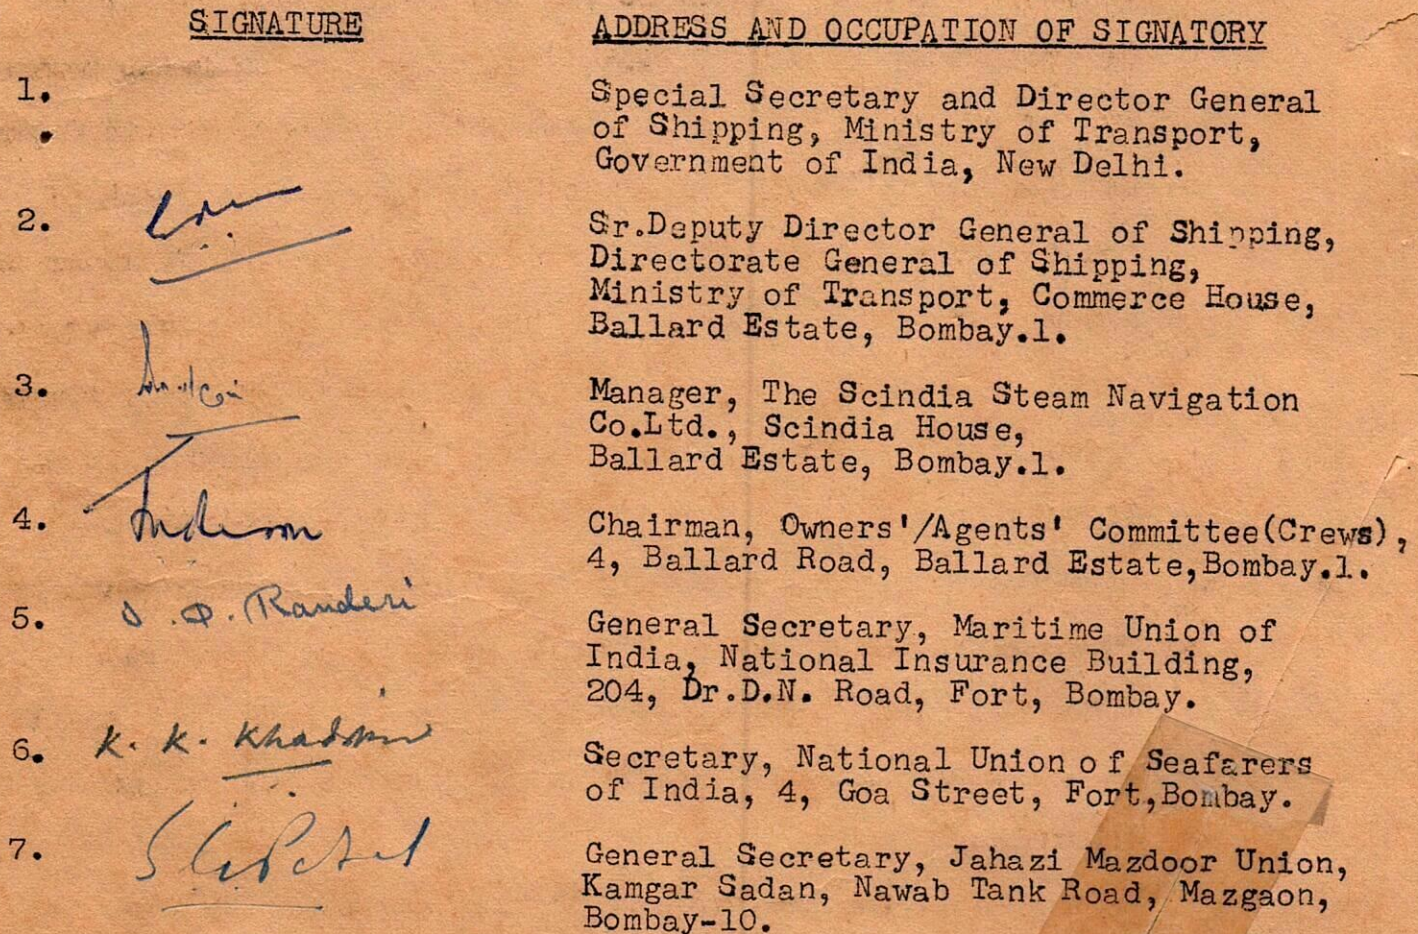 SIGNATURE ADDRESS AND OCCUPATION OF SIGNATORY
1. Special Secretary and Director General
of Shipping, Ministry of Transport,
Government of India, New Delhi.
2. Sr.Deputy Director General of Shipping,
Directorate General of Shipping,
Ministry of Transport, Commerce House,
Ballard Estate, Bombay.1.
3. Manager, The Scindia Steam Navigation
Co.Ltd., Scindia House,
Ballard Estate, Bombay.1.
4. Chairman, Owners'/Agents' Committee(Crews),
4, Ballard Road, Ballard Estate,Bombay.1.
5. S.D. Randeri General Secretary, Maritime Union of
India, National Insurance Building,
204, Dr.D.N. Road, Fort, Bombay.
6. K. K. Secretary, National Union of Seafarers
of India, 4, Goa Street, Fort,Bombay.
7. General Secretary, Jahazi Mazdoor Union,
Kamgar Sadan, Nawab Tank Road, Mazgaon,
Bombay-10.